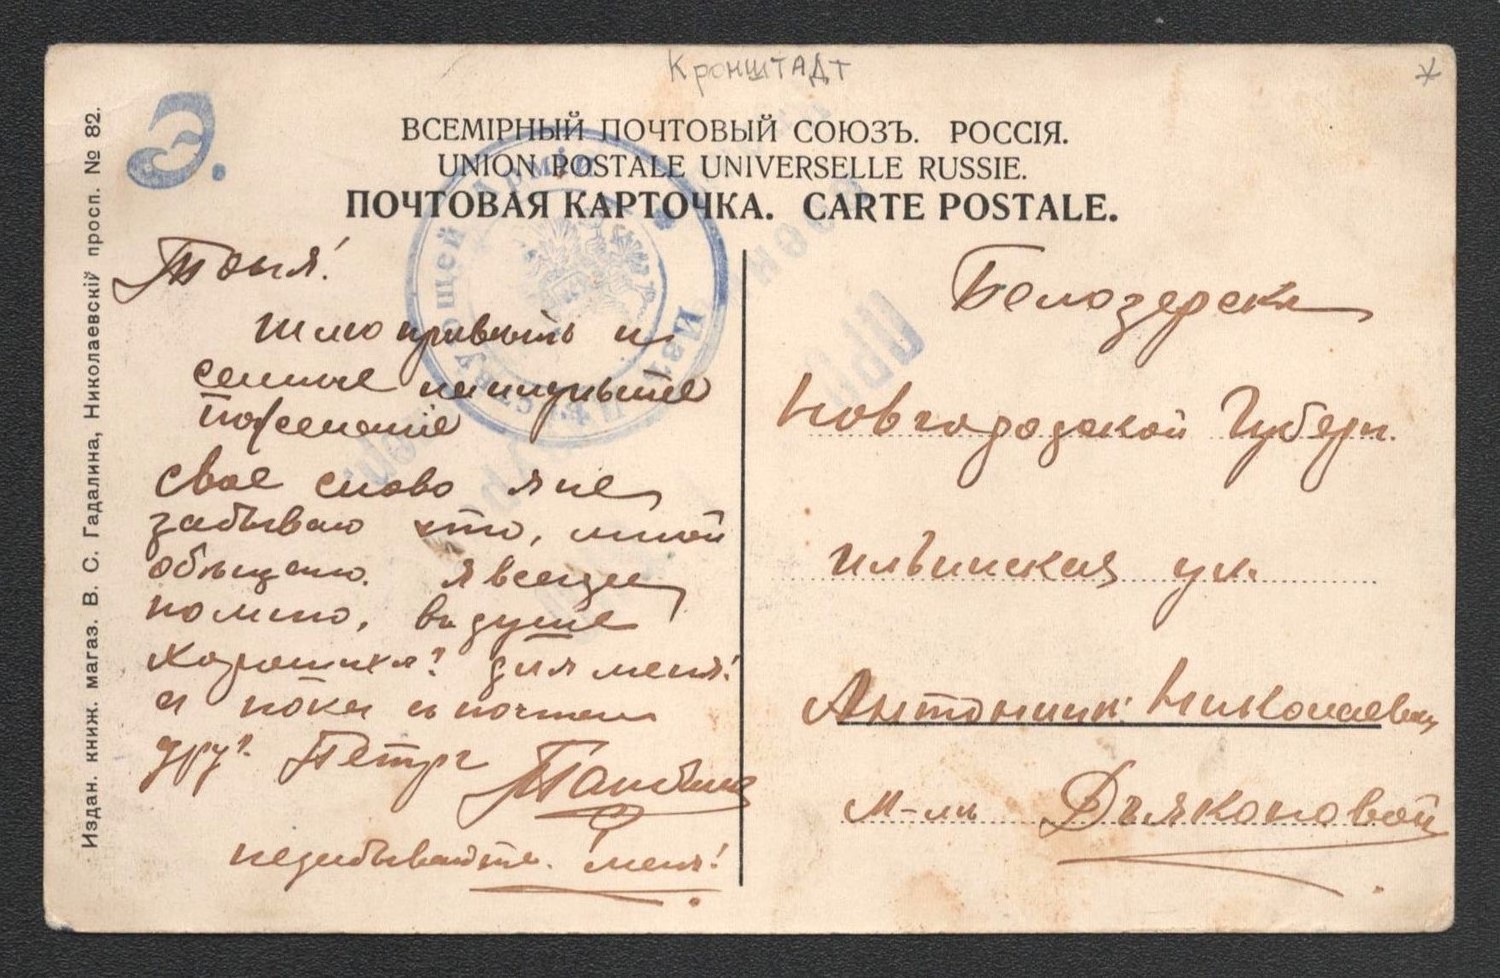 Кронштадт
Э.
ВСЕМІРНЫЙ ПОЧТОВЫЙ СОЮЗЪ. РОССІЯ.
UNION POSTALE UNIVERSELLE RUSSIE.
ПОЧТОВАЯ КАРТОЧКА. CARTE POSTALE.
Издан. книж. магаз. В. С. Гадалина, Николаевскій просп. № 82.
Дѣйствующей Арміи
Изъ
Тоня!
шлю привѣтъ и
самые наилучшие
пожеланіе
свое слово я не
забываю что, мной
обѣщано. я всегда
помню, въ душе
для меня!
и пока съ почтен
друг Петръ
незабывайте меня!
Белозерскъ
Новгородской Губерн.
ильинская ул.
Антонинѣ Николаевнѣ
М-ль Дъяконовой